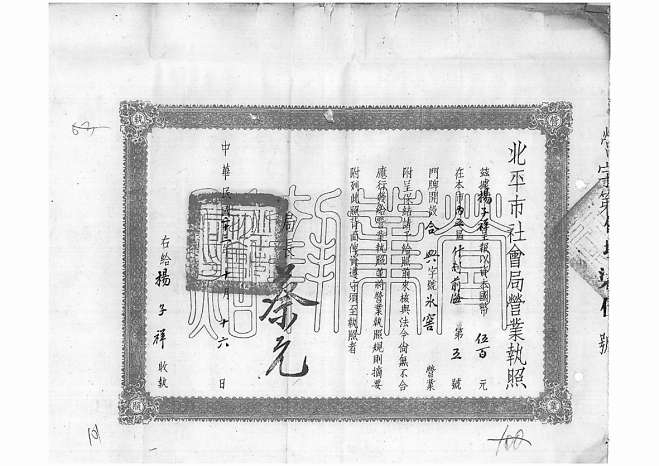 北平市社會局營業執照
茲據楊子祥呈報以資本國幣伍百元
在本市內 什剎前海第五號
門牌開設合興字號氷窖營業
附呈保結請予給照前來核與法令尚無不合
應行發給營業執照並將營業執照規則摘要
附列此照背面俾資遵守須至執照者
局長蔡元
中華民國 十月十六日
右給楊子祥收執
營字第 號